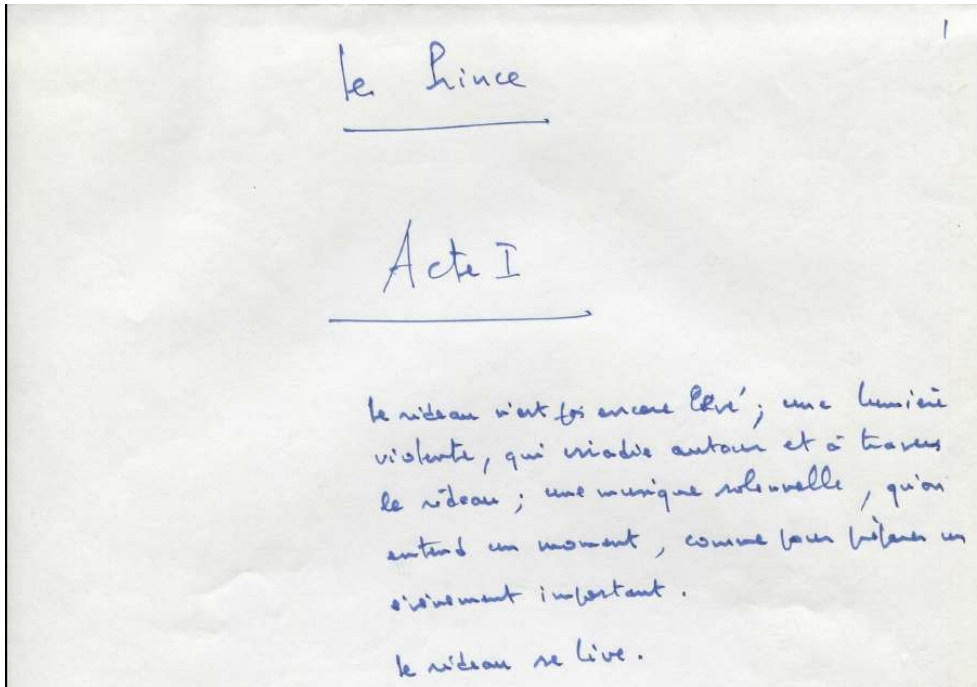 1
Le Prince
Acte I
Le rideau n'est pas encore levé ; une lumière
violente, qui irradie autour et à travers
le rideau ; une musique solennelle, qu'on
entend un moment, comme pour préparer un
évènement important.
Le rideau se lève.